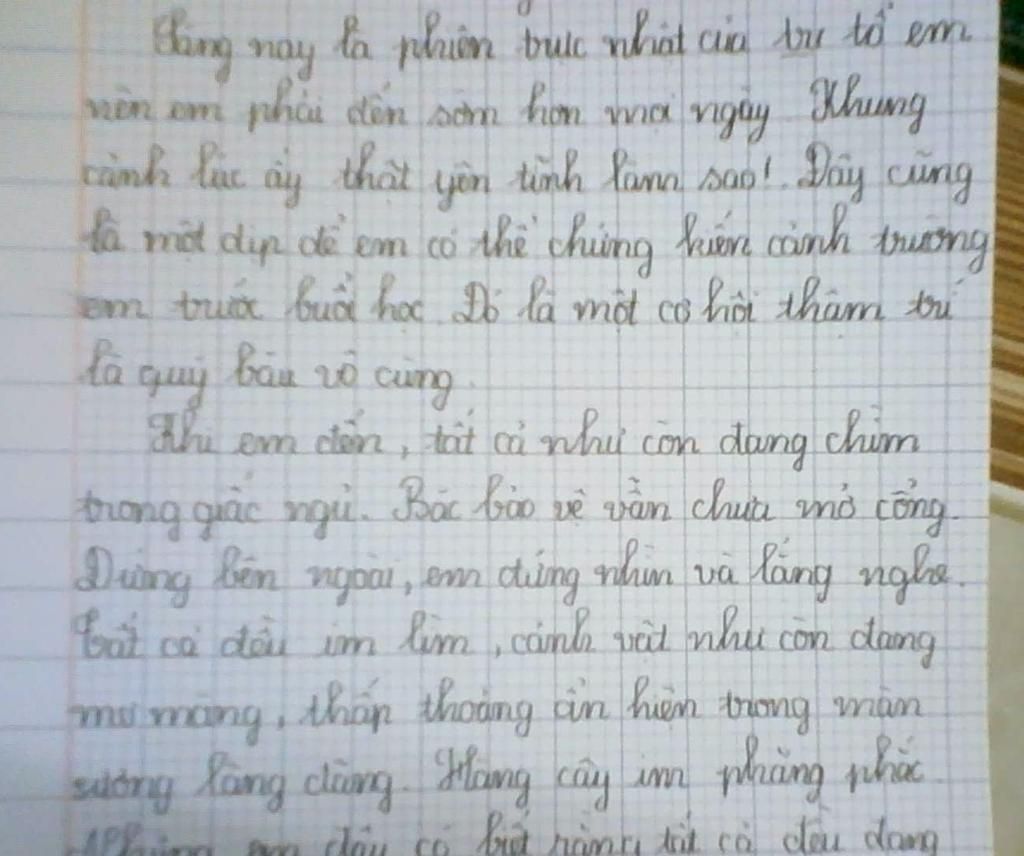 Sáng nay là phiên trực nhật của tổ em
nên em phải đến sớm hơn mọi ngày Khung
cảnh lúc ấy thật yên tĩnh làm sao! Đây cũng
là một dịp để em có thể chứng kiến cảnh trường
em trước buổi học. Đó là một cơ hội thậm trí
là quý báu vô cùng.
Khi em đến, tất cả như còn đang chìm
trong giấc ngủ. Bác bảo vệ vẫn chưa mở cổng.
Đứng bên ngoài, em đứng nhìn và lắng nghe.
Tất cả đều im lìm, cảnh vật như còn đang
mơ màng, thấp thoáng ẩn hiện trong màn
sương lãng đãng. Hàng cây im phăng phắc.
em đâu có biết rằng tất cả đều đang